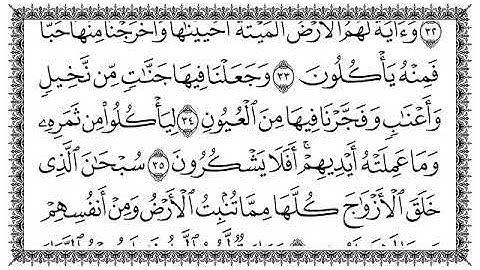 ٣٢ وَءَايَةٌ لَّهُمُ الْأَرْضُ الْمَيْتَةُ أَحْيَيْنَٰهَا وَأَخْرَجْنَا مِنْهَا حَبًّا
فَمِنْهُ يَأْكُلُونَ ٣٣ وَجَعَلْنَا فِيهَا جَنَّٰتٍ مِّن نَّخِيلٍ
وَأَعْنَٰبٍ وَفَجَّرْنَا فِيهَا مِنَ الْعُيُونِ ٣٤ لِيَأْكُلُوا۟ مِن ثَمَرِهِۦ
وَمَا عَمِلَتْهُ أَيْدِيهِمْ ۖ أَفَلَا يَشْكُرُونَ ٣٥ سُبْحَٰنَ الَّذِى
خَلَقَ الْأَزْوَٰجَ كُلَّهَا مِمَّا تُنۢبِتُ الْأَرْضُ وَمِنْ أَنفُسِهِمْ